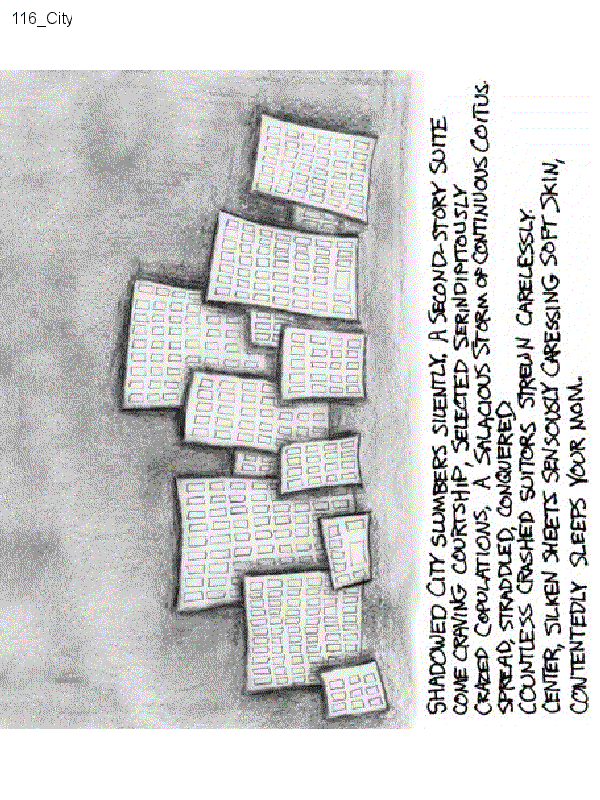 116_City
SHADOWED CITY SLUMBERS SILENTLY, A SECOND-STORY SUITE
COME CRAVING COURTSHIP, SELECTED SERINDIPITOUSLY
CRAZED COPULATIONS, A SALACIOUS STORM OF CONTINUOUS COITUS.
SPREAD, STRADDLED, CONQUERED.
COUNTLESS CRASHED SUITORS STREWN CARELESSLY.
CENTER, SILKEN SHEETS SENSOUSLY CARESSING SOFT SKIN,
CONTENTEDLY SLEEPS YOUR MOM.